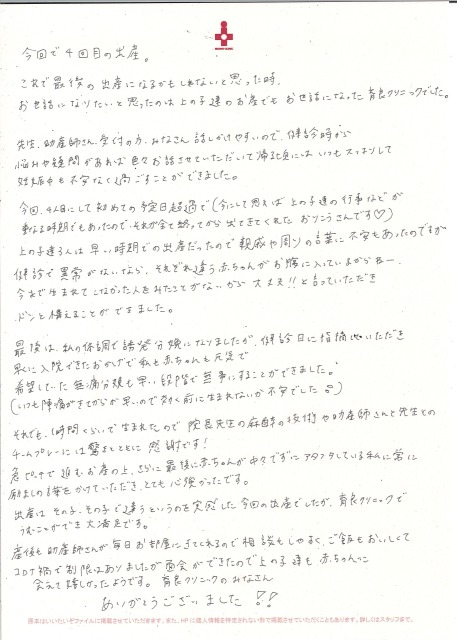 今回で4回目の出産。
これで最後の出産になるかもしれないと思った時、
お世話になりたいと思ったのは上の子達のお産でもお世話になった育良クリニックでした。
先生、助産師さん、受付の方、みなさん話しかけやすいので、健診時から
悩みや疑問があれば色々お話させていただいて帰る頃にはいつもスッキリして
妊娠中も不安なく過ごすことができました。
今回、4人目にして初めての予定日超過で(今にして思えば上の子達の行事などが
重なる時期でもあったので、それが全て終ってから出てきてくれたおりこうさんです♡)
上の子達3人は早い時期での出産だったので親戚や周りの言葉に不安もあったのですが
健診で異常がないなら、それぞれ違う赤ちゃんがお腹に入っているからねー、
今まで生まれてこなかった人をみたことがないから大丈夫!!と言っていただき
ドンと構えることができました。
最後は、私の体調で誘発分娩になりましたが、健診日に指摘いただき
早くに入院できたおかげで私も赤ちゃんも元気で
希望していた無痛分娩も早い段階で無事にすることができました。
(いつも陣痛がきてからが早いので効く前に生まれないか不安でした)
それでも、1時間くらいで生まれたので院長先生の麻酔の技術や助産師さんと先生との
チームプレーには驚きとともに感謝です!
急ピッチで進むお産の上、さらに最後に赤ちゃんが中々でずにアタフタしている私に常に
励ましの言葉をかけていただき、とても心強かったです。
出産はその子、その子で違うというのを実感した今回の出産でしたが、育良クリニックで
うむことができ大満足です。
産後も助産師さんが毎日お部屋にきてくれるので相談もしやすく、ご飯もおいしくて
コロナ禍で制限はありましたが面会ができたので上の子達も赤ちゃんに
会えて嬉しかったようです。育良クリニックのみなさん
ありがとうございました!!
原本はいいたいそファイルに掲載させていただきます。また、HPに個人情報を特定されない形で掲載させていただくこともあります。詳しくはスタッフまで。